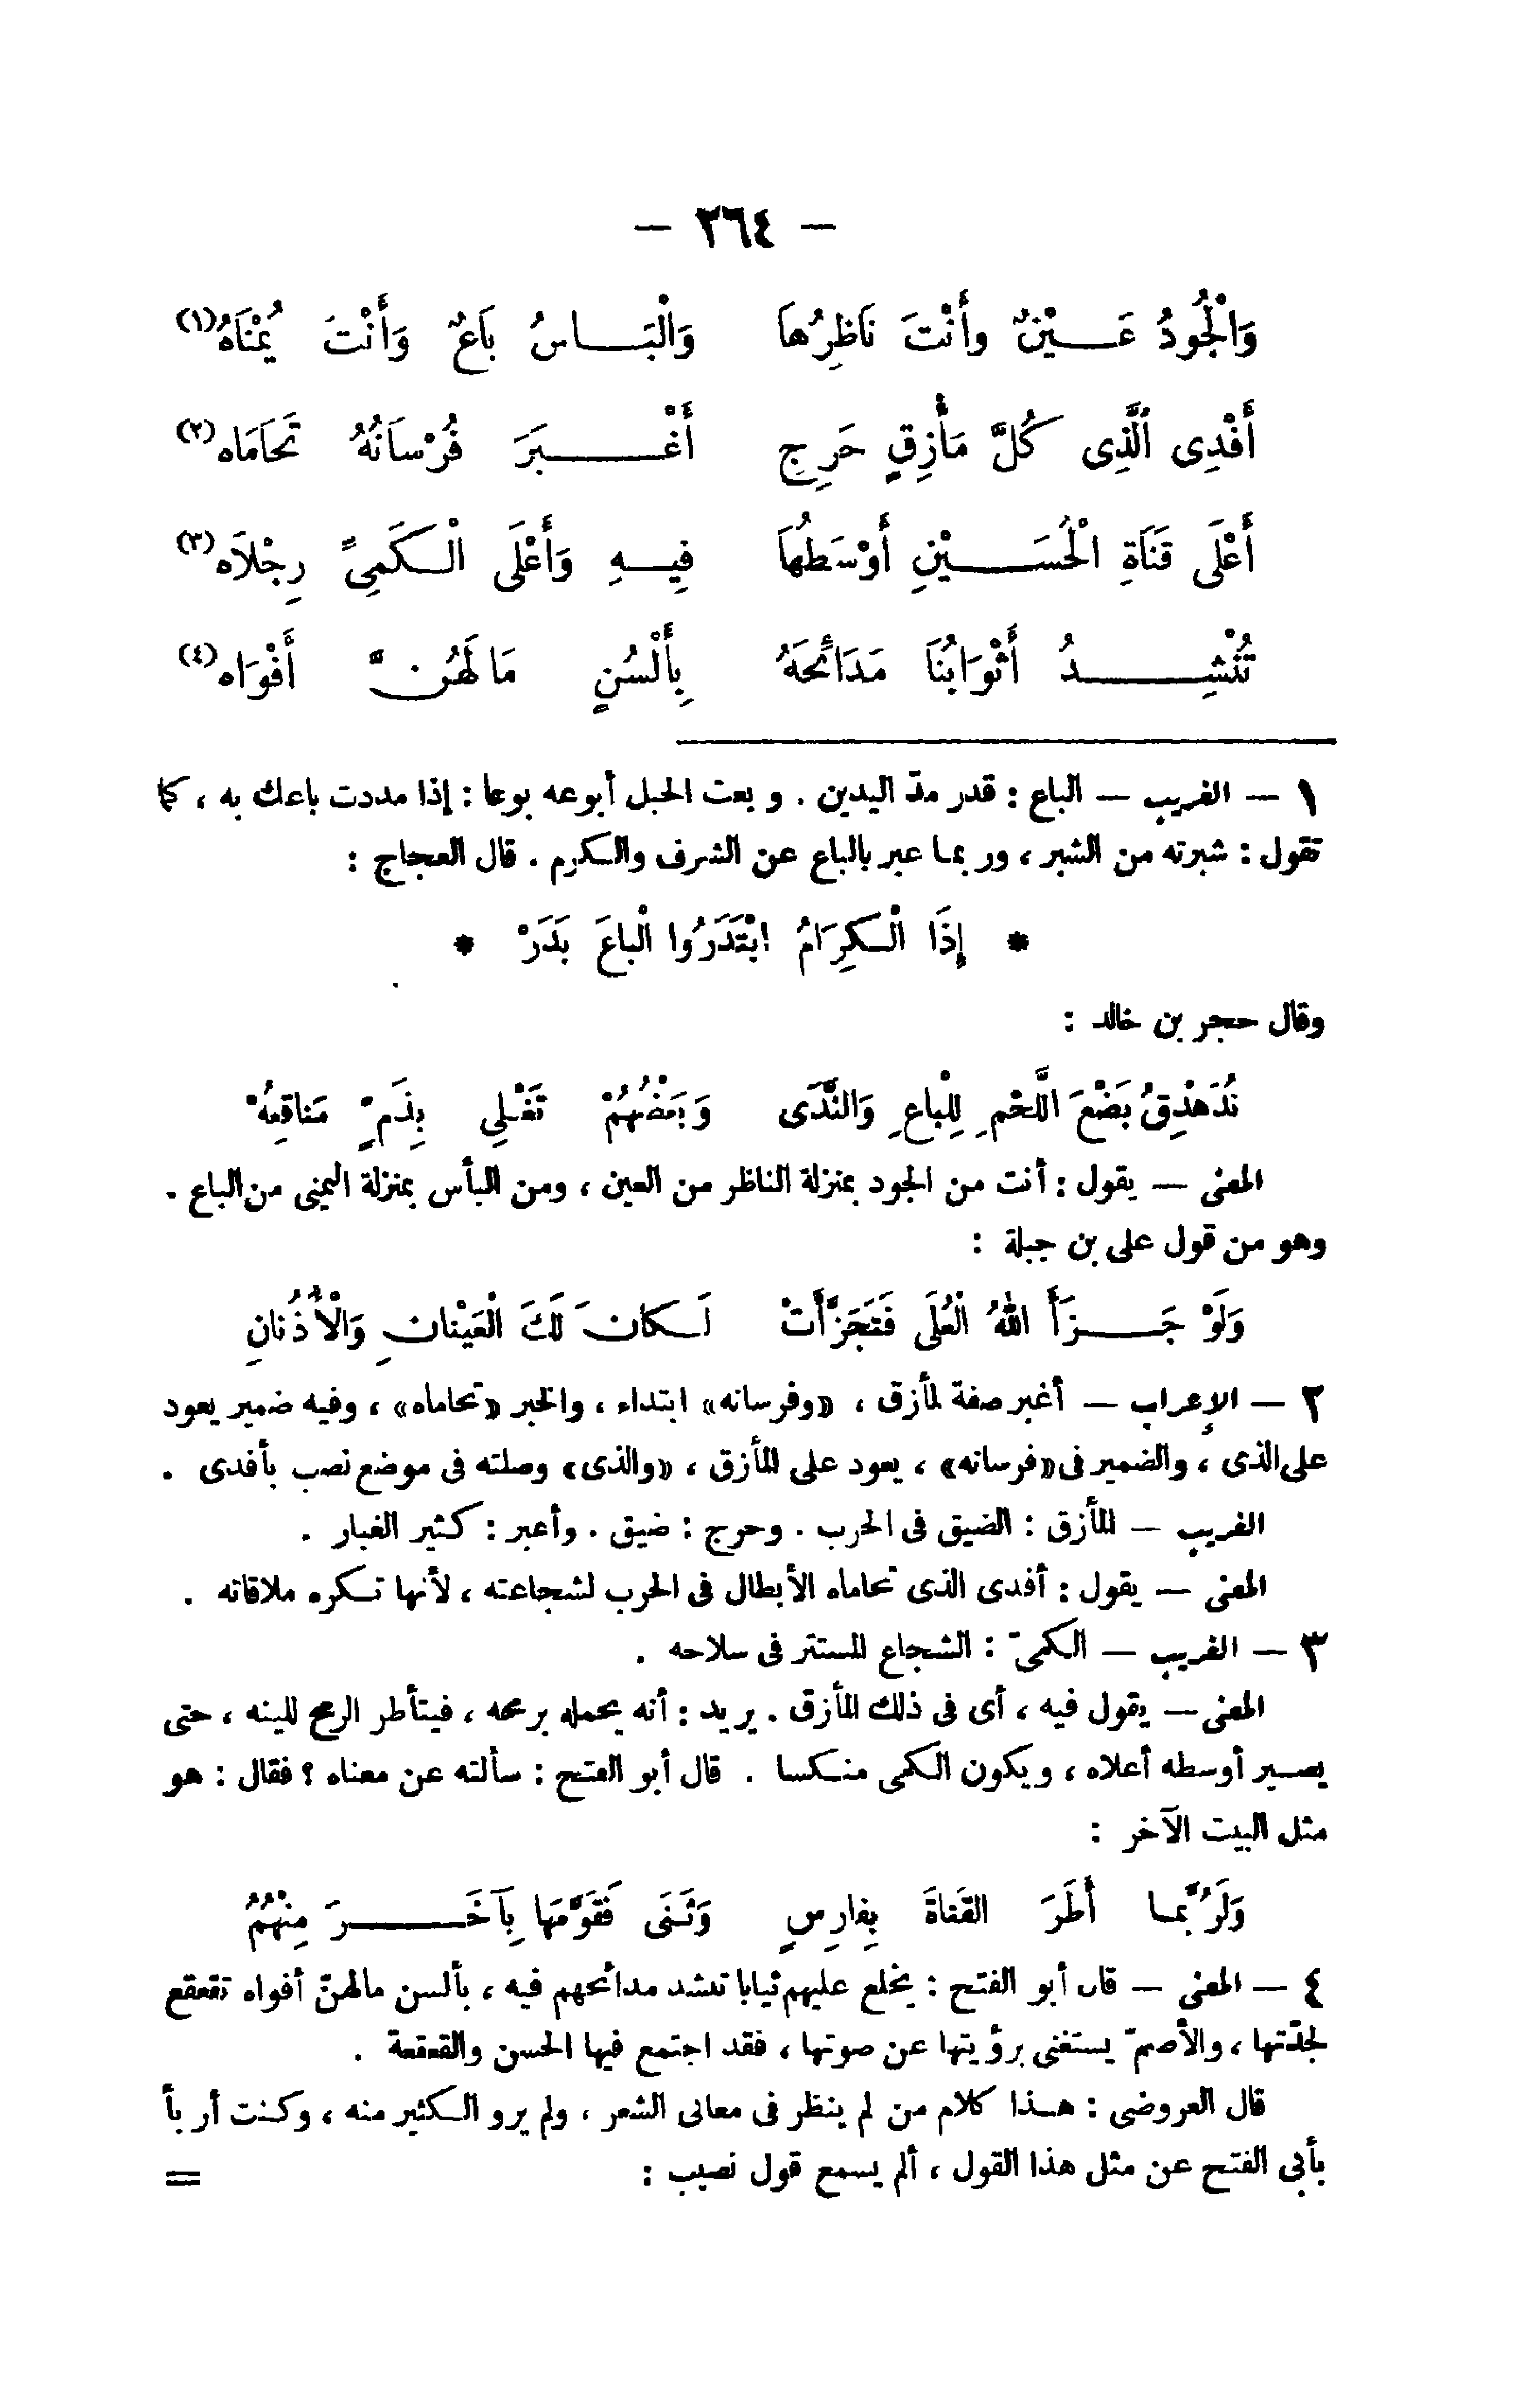 — ٢٦٤ —
وَالْجُودُ عَـــيْنٌ وأَنْتَ نَاظِرُها وَالْبَـــاسُ بَاعٌ وَأَنْتَ يُمْنَاهُ(١)
أَفْدِى ٱلَّذِى كُلَّ مَأْزِقٍ حَرِجٍ أَغْـــبَرَ فُرْسَانُهُ تَحَامَاه(٢)
أَعْلَى قَنَاةِ الْحُسَـــيْنِ أَوْسَطُهَا فِيـــهِ وَأَعْلَى الْـكَمِىِّ رِجْلَاه(٣)
تُنْشِـــدُ أَثْوَابُنَا مَدَائِحَهُ بِأَلْسُنٍ مَا لَهُنَّ أَفْوَاه(٤)
١ — الغريب — الباع : قدر مدّ اليدين . وبعت الحبل أبوعه بوعا : إذا مددت باعك به ، كما
تقول : شبرته من الشبر ، وربما عبر بالباع عن الشرف والـكرم . قال العجاج :
* إِذَا الْـكِرَامُ ابْتَدَرُوا الْباعَ بَدَرْ *
وقال حجر بن خالد :
نُدَهْدِقُ بَضْعَ اللَّحْمِ لِلْباعِ وَالنَّدَى وَبَعْضُهُمْ تَغْلِى بِذَمٍّ مَناقِعُهْ
المعنى — يقول : أنت من الجود بمنزلة الناظر من العين ، ومن البأس بمنزلة اليمنى من الباع .
وهو من قول على بن جبلة :
وَلَوْ جَـــزَّأَ اللهُ الْعُلَى فَتَجَزَّأَتْ لَـكانَ لَكَ الْعَيْنانِ وَالْأُذُنانِ
٢ — الإعراب — أغبر صفة لمأزق ، «وفرسانه» ابتداء ، والخبر «تحاماه» ، وفيه ضمير يعود
على الذى ، والضمير فى «فرسانه» ، يعود على المأزق ، «والذى» وصلته فى موضع نصب بأفدى .
الغريب — المأزق : الضيق فى الحرب . وحرج : ضيق . وأعبر : كثير الغبار .
المعنى — يقول : أفدى الذى تحاماه الأبطال فى الحرب لشجاعته ، لأنها تـكره ملاقاته .
٣ — الغريب — الـكمىّ : الشجاع المستتر فى سلاحه .
المعنى — يقول فيه ، أى فى ذلك المأزق . يريد : أنه يحمله برمحه ، فيتأطر الرمح للينه ، حتى
يصـير أوسطه أعلاه ، ويكون الـكمى منـكسا . قال أبو الفتح : سألته عن معناه ؟ فقال : هو
مثل البيت الآخر :
وَلَرُبَّمـا أَطَرَ القَناةَ بِفارِسٍ وَثَـنَى فَقَوَّمَها بِآخَـــرَ مِنْهُمُ
٤ — المعنى — قال أبو الفتح : يخلع عليهم ثيابا تنشد مدائحهم فيه ، بألسن مالهنّ أفواه تقعقع
لجدّتها ، والأصمّ يستغنى برؤيتها عن صوتها ، فقد اجتمع فيها الحسن والقعقعة .
قال العروضى : هـذا كلام من لم ينظر فى معانى الشعر ، ولم يرو الـكثير منه ، وكنت أربأ
بأبى الفتح عن مثل هذا القول ، ألم يسمع قول نصيب : =